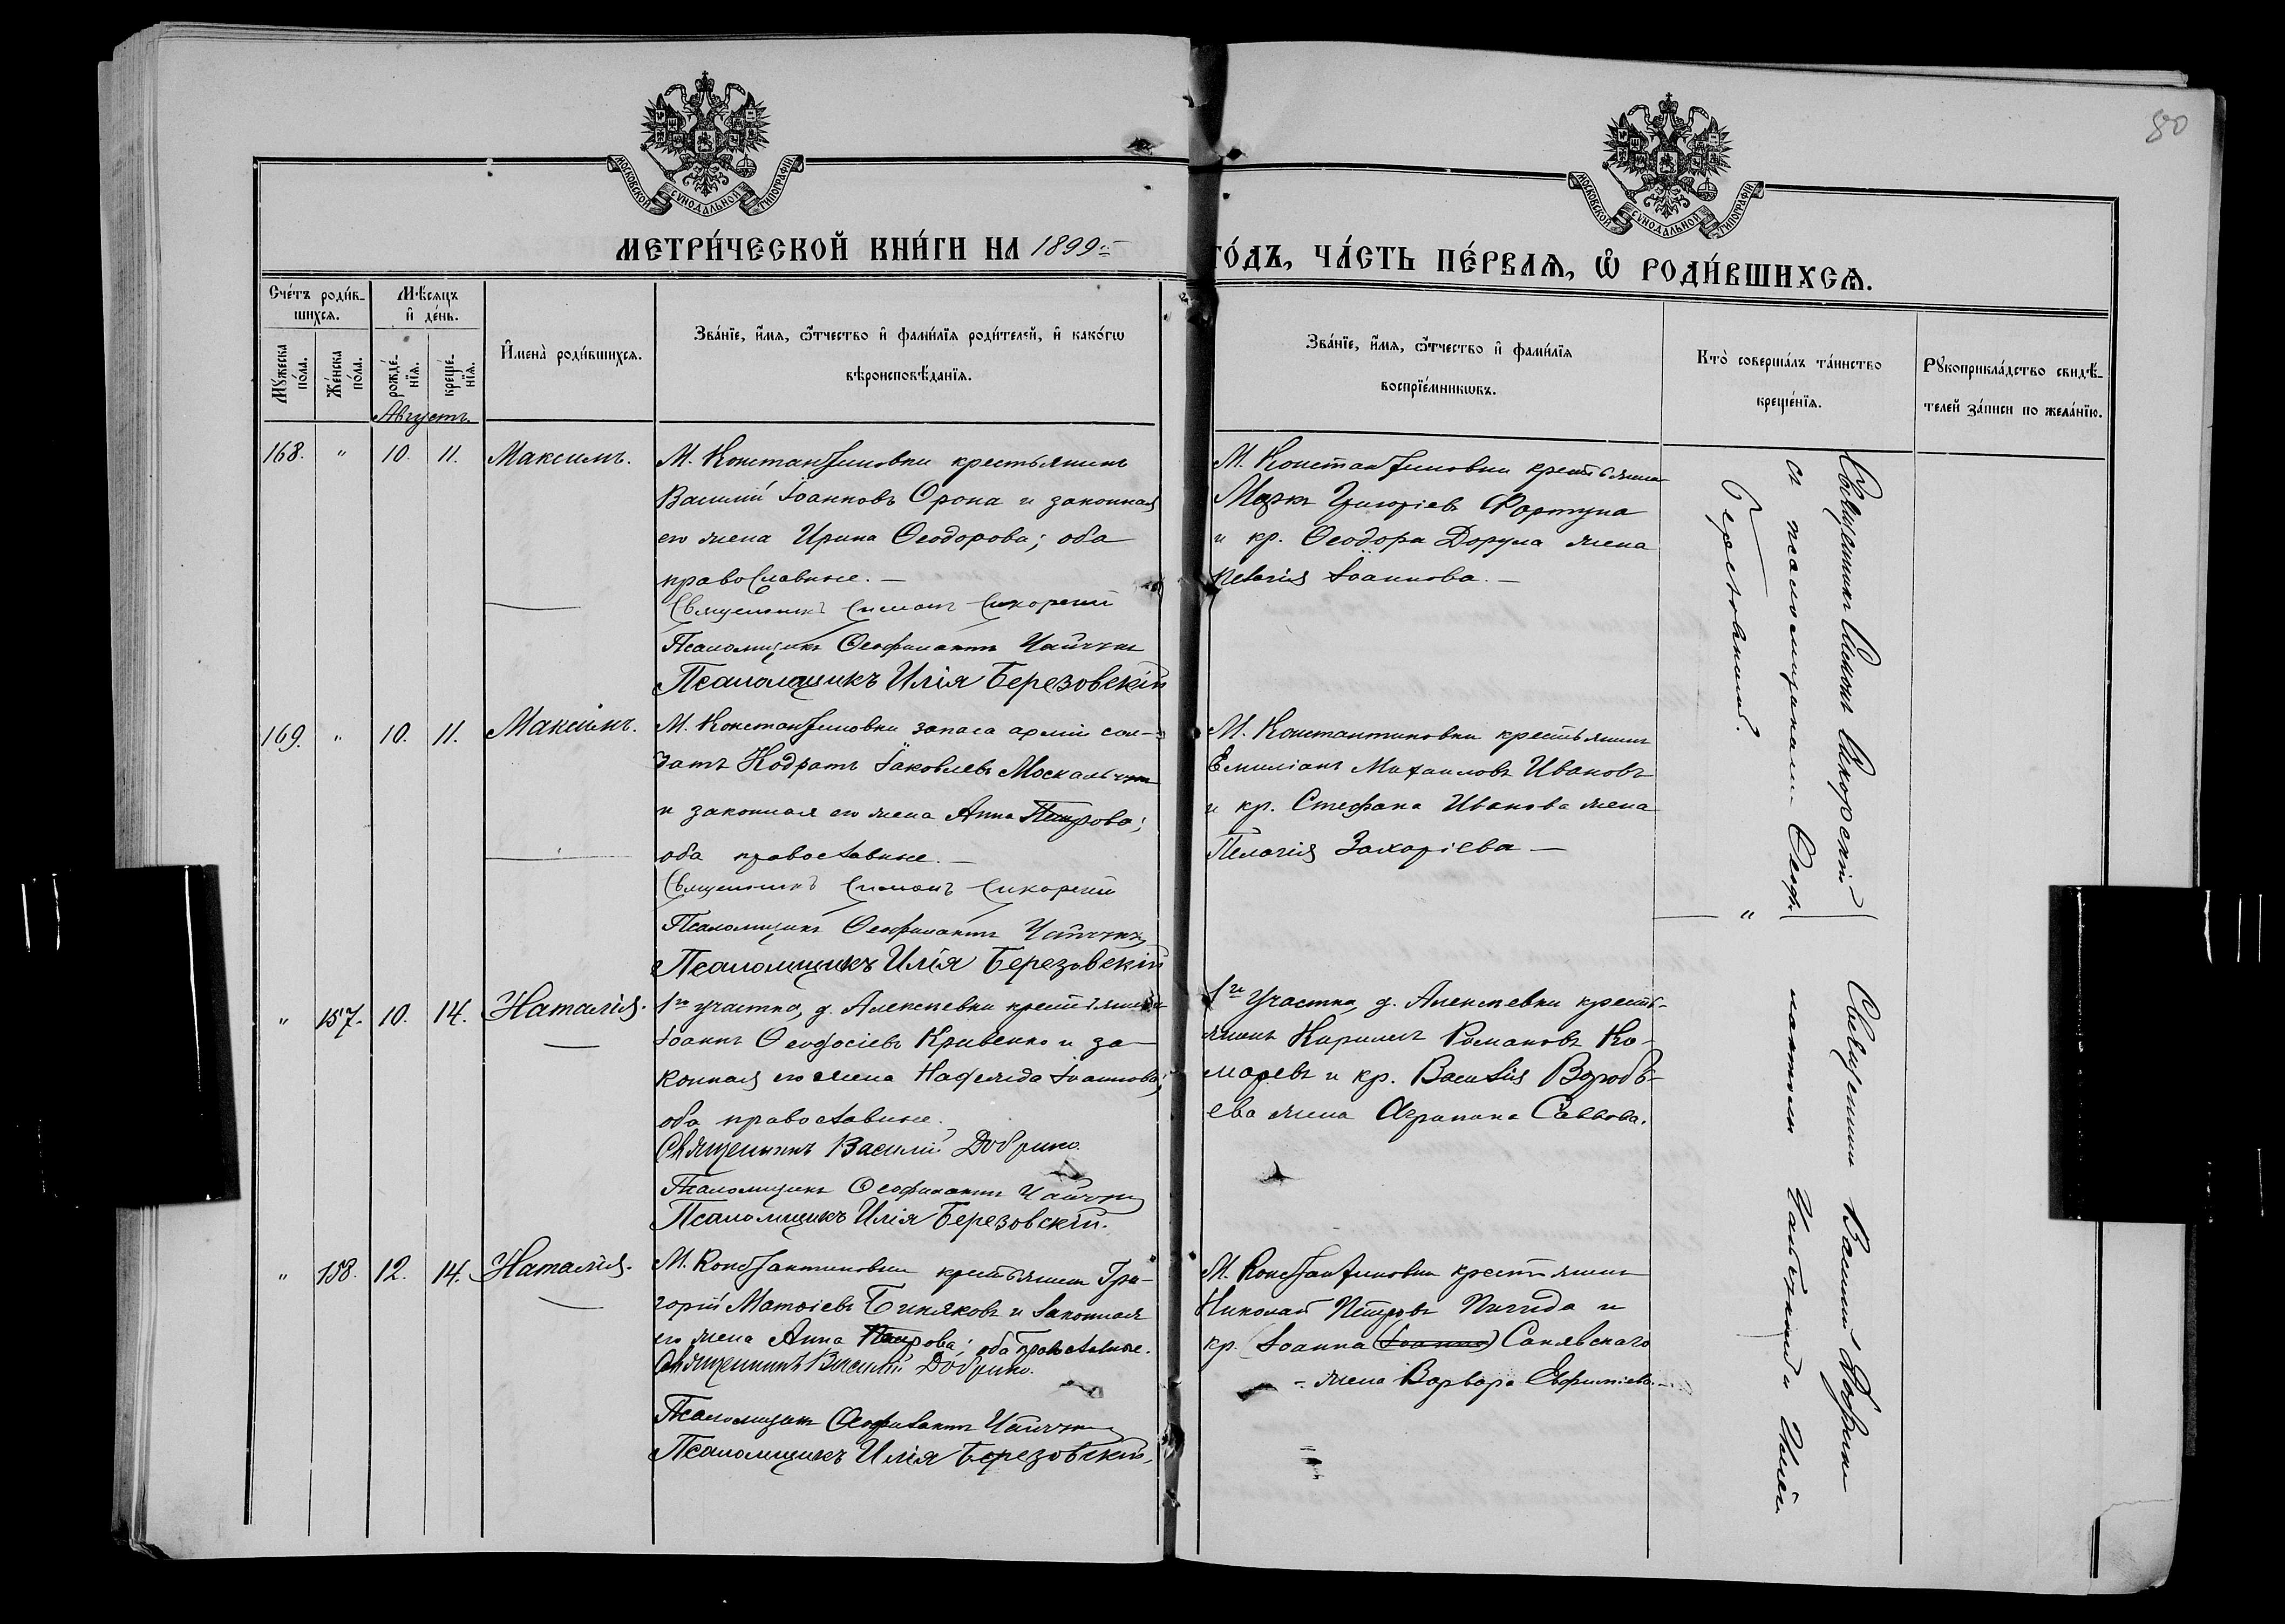 80
МОСКОВСКОЙ СѴНОДАЛЬНОЙ ТИПОГРАФІИ
МОСКОВСКОЙ СѴНОДАЛЬНОЙ ТИПОГРАФІИ
МЕТРИ́ЧЕСКОЙ КНИ́ГИ НА 1899 го́дъ, ЧА́СТЬ ПЕ́РВАѦ, Ѽ РОДИ́ВШИХСѦ.
Сче́тъ роди́в-
шихся.
Мѣ́сяцъ
и҆ де́нь.
И҆мена̀ роди́вшихся.
Зва́нїе, и҆́мя, ѻ҆́тчество и҆ фами́лїя роди́телей, и҆ како́гѡ
вѣроисповѣ́данїя.
Мꙋ́жеска по́ла.
Же́нска по́ла.
рожде́-
нїя.
креще́-
нїя.
Августъ.
Зва́нїе, и҆́мя, ѻ҆́тчество и҆ фами́лїя
воспрїе́мникѡвъ.
Кто̀ соверша́лъ та́инство
креще́нїя.
Рꙋкоприкла́дство свидѣ́-
телей за́писи по жела́нїю.
168. " 10. 11. Максимъ.
М. Константиновки крестьянинъ
Василій Іоанновъ Орона и законная
его жена Ирина Ѳеодорова; оба
православные. —
Священникъ Симонъ Сикорскій
Псаломщикъ Ѳеофилактъ
Псаломщикъ Илія Березовскій
М. Константиновки крестьянинъ
Маркъ Григоріевъ Фортуна
и кр. Ѳеодора Дорула жена
Пелагія Іоаннова. —
Священникъ Симонъ Сикорскій
съ псаломщиками Ѳеоф.
169. " 10. 11. Максимъ.
М. Константиновки запаса арміи сол-
датъ Кодратъ Іаковлевъ
и законная его жена Анна Петрова;
оба православные. —
Священникъ Симонъ Сикорскій
Псаломщикъ Ѳеофилактъ
Псаломщикъ Илія Березовскій
М. Константиновки крестьянинъ
Емиліанъ Михаиловъ Ивановъ
и кр. Стефана Иванова жена
Пелагія Захаріева —
" 157. 10. 14. Наталія.
1го участка, д. Алексеевки крестьянинъ
Іоаннъ Ѳеодосіевъ Кривенко и за-
конная его жена Надежда Іоаннова;
оба православные.
Священникъ Василій Добрино.
Псаломщикъ Ѳеофилактъ
Псаломщикъ Илія Березовскій.
1го участка, д. Алексеевки кресть-
янинъ Кириллъ Романовъ Ко-
маревъ и кр. Василія Вороб-
ева жена Агрипина Саввова.
Священникъ Василій Добрино
" 158. 12. 14. Наталія.
М. Константиновки крестьянинъ Гри-
горій Матѳіевъ Биняковъ и законная
его жена Анна Петрова; оба православные.
Священникъ Василій Добрино.
Псаломщикъ Ѳеофилактъ
Псаломщикъ Илія Березовскій.
М. Константиновки крестьянинъ
Николай Петровъ и
кр. Іоанна (Іоанна) Санявскаго
- жена Варвара Евфиміева. -